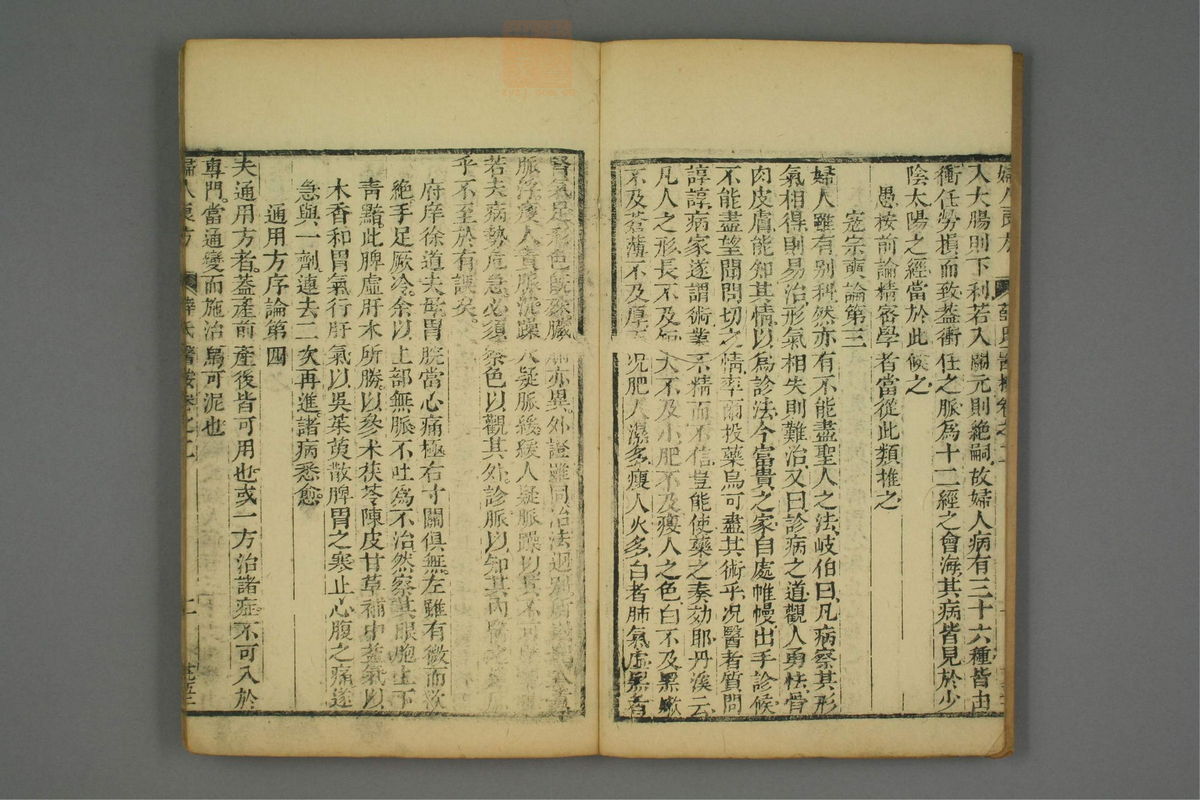 入大腸則下利若入關元則絶嗣故婦人病有三十六種皆由
衝任勞損而致蓋衝任之脈為十二經之會海其病皆見於少
陰太陽之經當於此候之
愚按前論精密學者當從此類推之
寇宗奭論第三
婦人雖有别科然亦有不能盡聖人之法岐伯曰凡病察其形
氣相得則易治形氣相失則難治又曰診病之道觀人勇怯骨
肉皮膚能知其情以為診法今富貴之家自處帷幔出手診候
不能盡望聞問切之情率爾投藥烏可盡其術乎况醫者質問
諄諄病家遂謂術業不精而不信豈能使藥之奏効耶丹溪云
凡人之形長不及短大不及小肥不及瘦人之色白不及黑嫩
不及蒼薄不及厚況肥人濕多瘦人火多白者肺氣虛黑者
腎氣足形色既殊臟腑亦異外證雖同治法迥别所
脈浮瘦人責脈沉躁人疑脈緩緩人疑脈躁以其不可
若夫病勢危急必須察色以觀其外診脈以知其內
乎不至於有誤矣
府庠徐道夫母胃脘當心痛極右寸關俱無左雖有微而欲
絶手足厥冷余以上部無脈不吐為不治然察其眼胞上下
青黯此脾虛肝木所勝以參术茯苓陳皮甘草補中益氣以
木香和胃氣行肝氣以吳茱萸散脾胃之寒止心腹之痛遂
急與一劑遽去二次再進諸病悉愈
通用方序論第四
夫通用方者蓋產前產後皆可用也或一方治諸症不可入於
專門當通變而施治烏可泥也
婦人良方 薛氏醫按卷之二